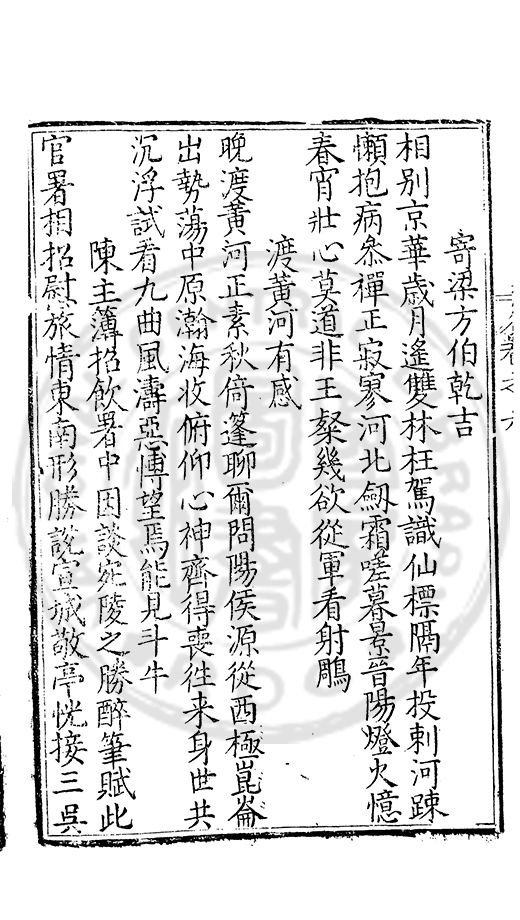 寄梁方伯乾吉
相别京華歲月遙雙林枉駕識仙標隔年投刺河踈
懶抱病叅禪正寂寥河北劔霜嗟暮景晉陽燈火憶
春宵壯心莫道非王粲幾欲從軍看射鵰
渡黃河有感
晚渡黃河正素秋倚篷聊爾問陽侯源從西極崑崙
出勢蕩中原瀚海收俯仰心神齊得喪往来身世共
沉浮試看九曲風濤惡博望焉能見斗牛
陳主簿招飲署中因談宛陵之勝醉筆賦此
官署相招慰旅情東南形勝說宣城敬亭恍接三吳